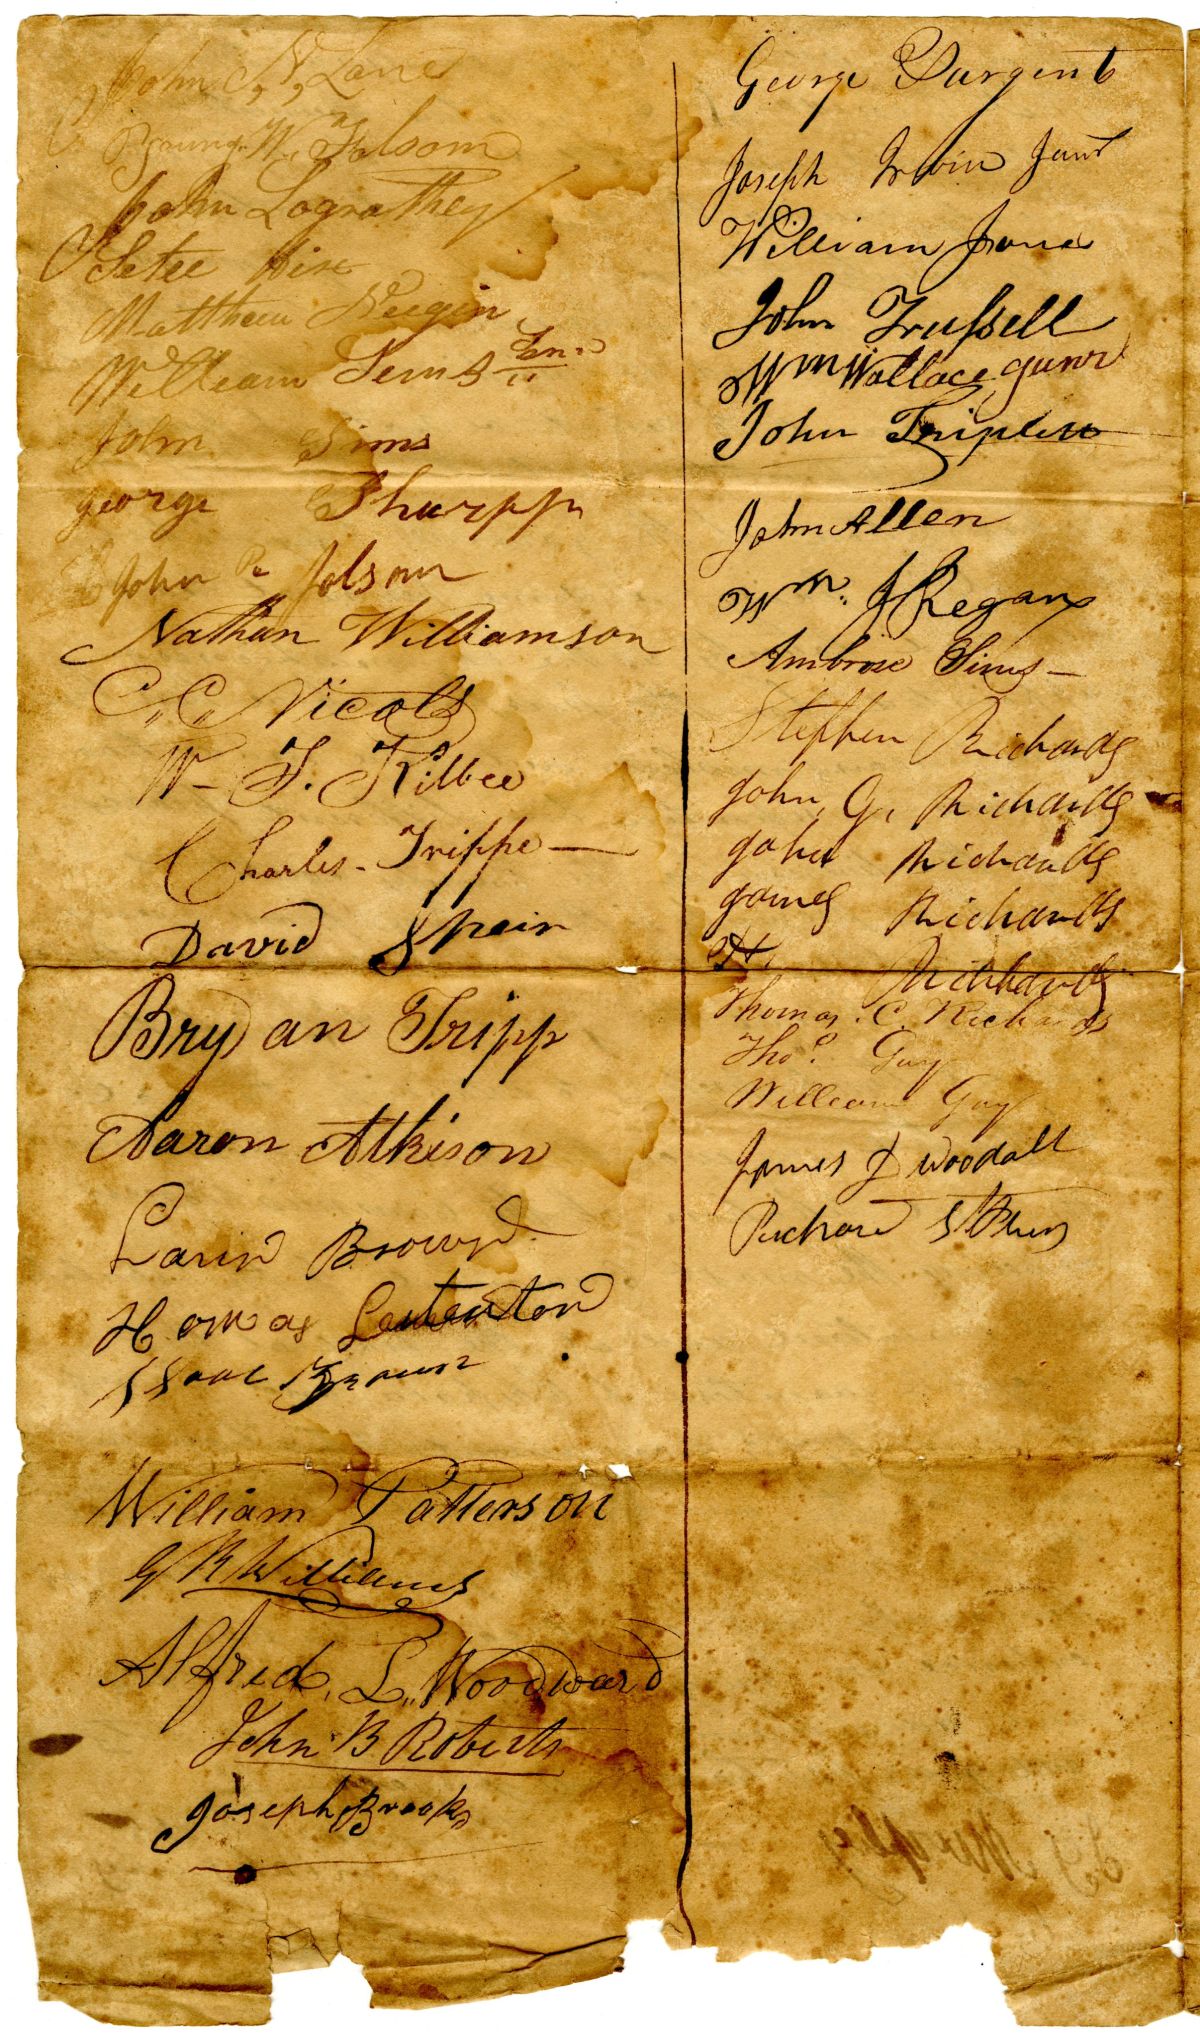 John N, Lane
Young W. Folsom
John Lograthey
Peter Hise
Matthew
William Sems Sen.
John Sims
george Sharpp
John R Folsom
Nathan Williamson
C. C. Nicols
W. T. Kilbee
Charles Trippe
David Spein
Bryan Tripp
Aaron Atkison
Larin Brown
Homas
Isaac Brown
William Patterson
G R Williams
Alfred. L. Woodward
John B Roberts
Joseph Brooks
George Sargent
Joseph Irwin Junr
William Jones
John Trussell
Wm Wallace Junr
John Triplett
John Allen
Wm. J Regan
Ambrose Sims
Stephen Richards
John, G, Richards
John Richards
James Richards
Richards
Thomas. C. Richards
Thos. Guy
William Guy
James D Woodall
Richard